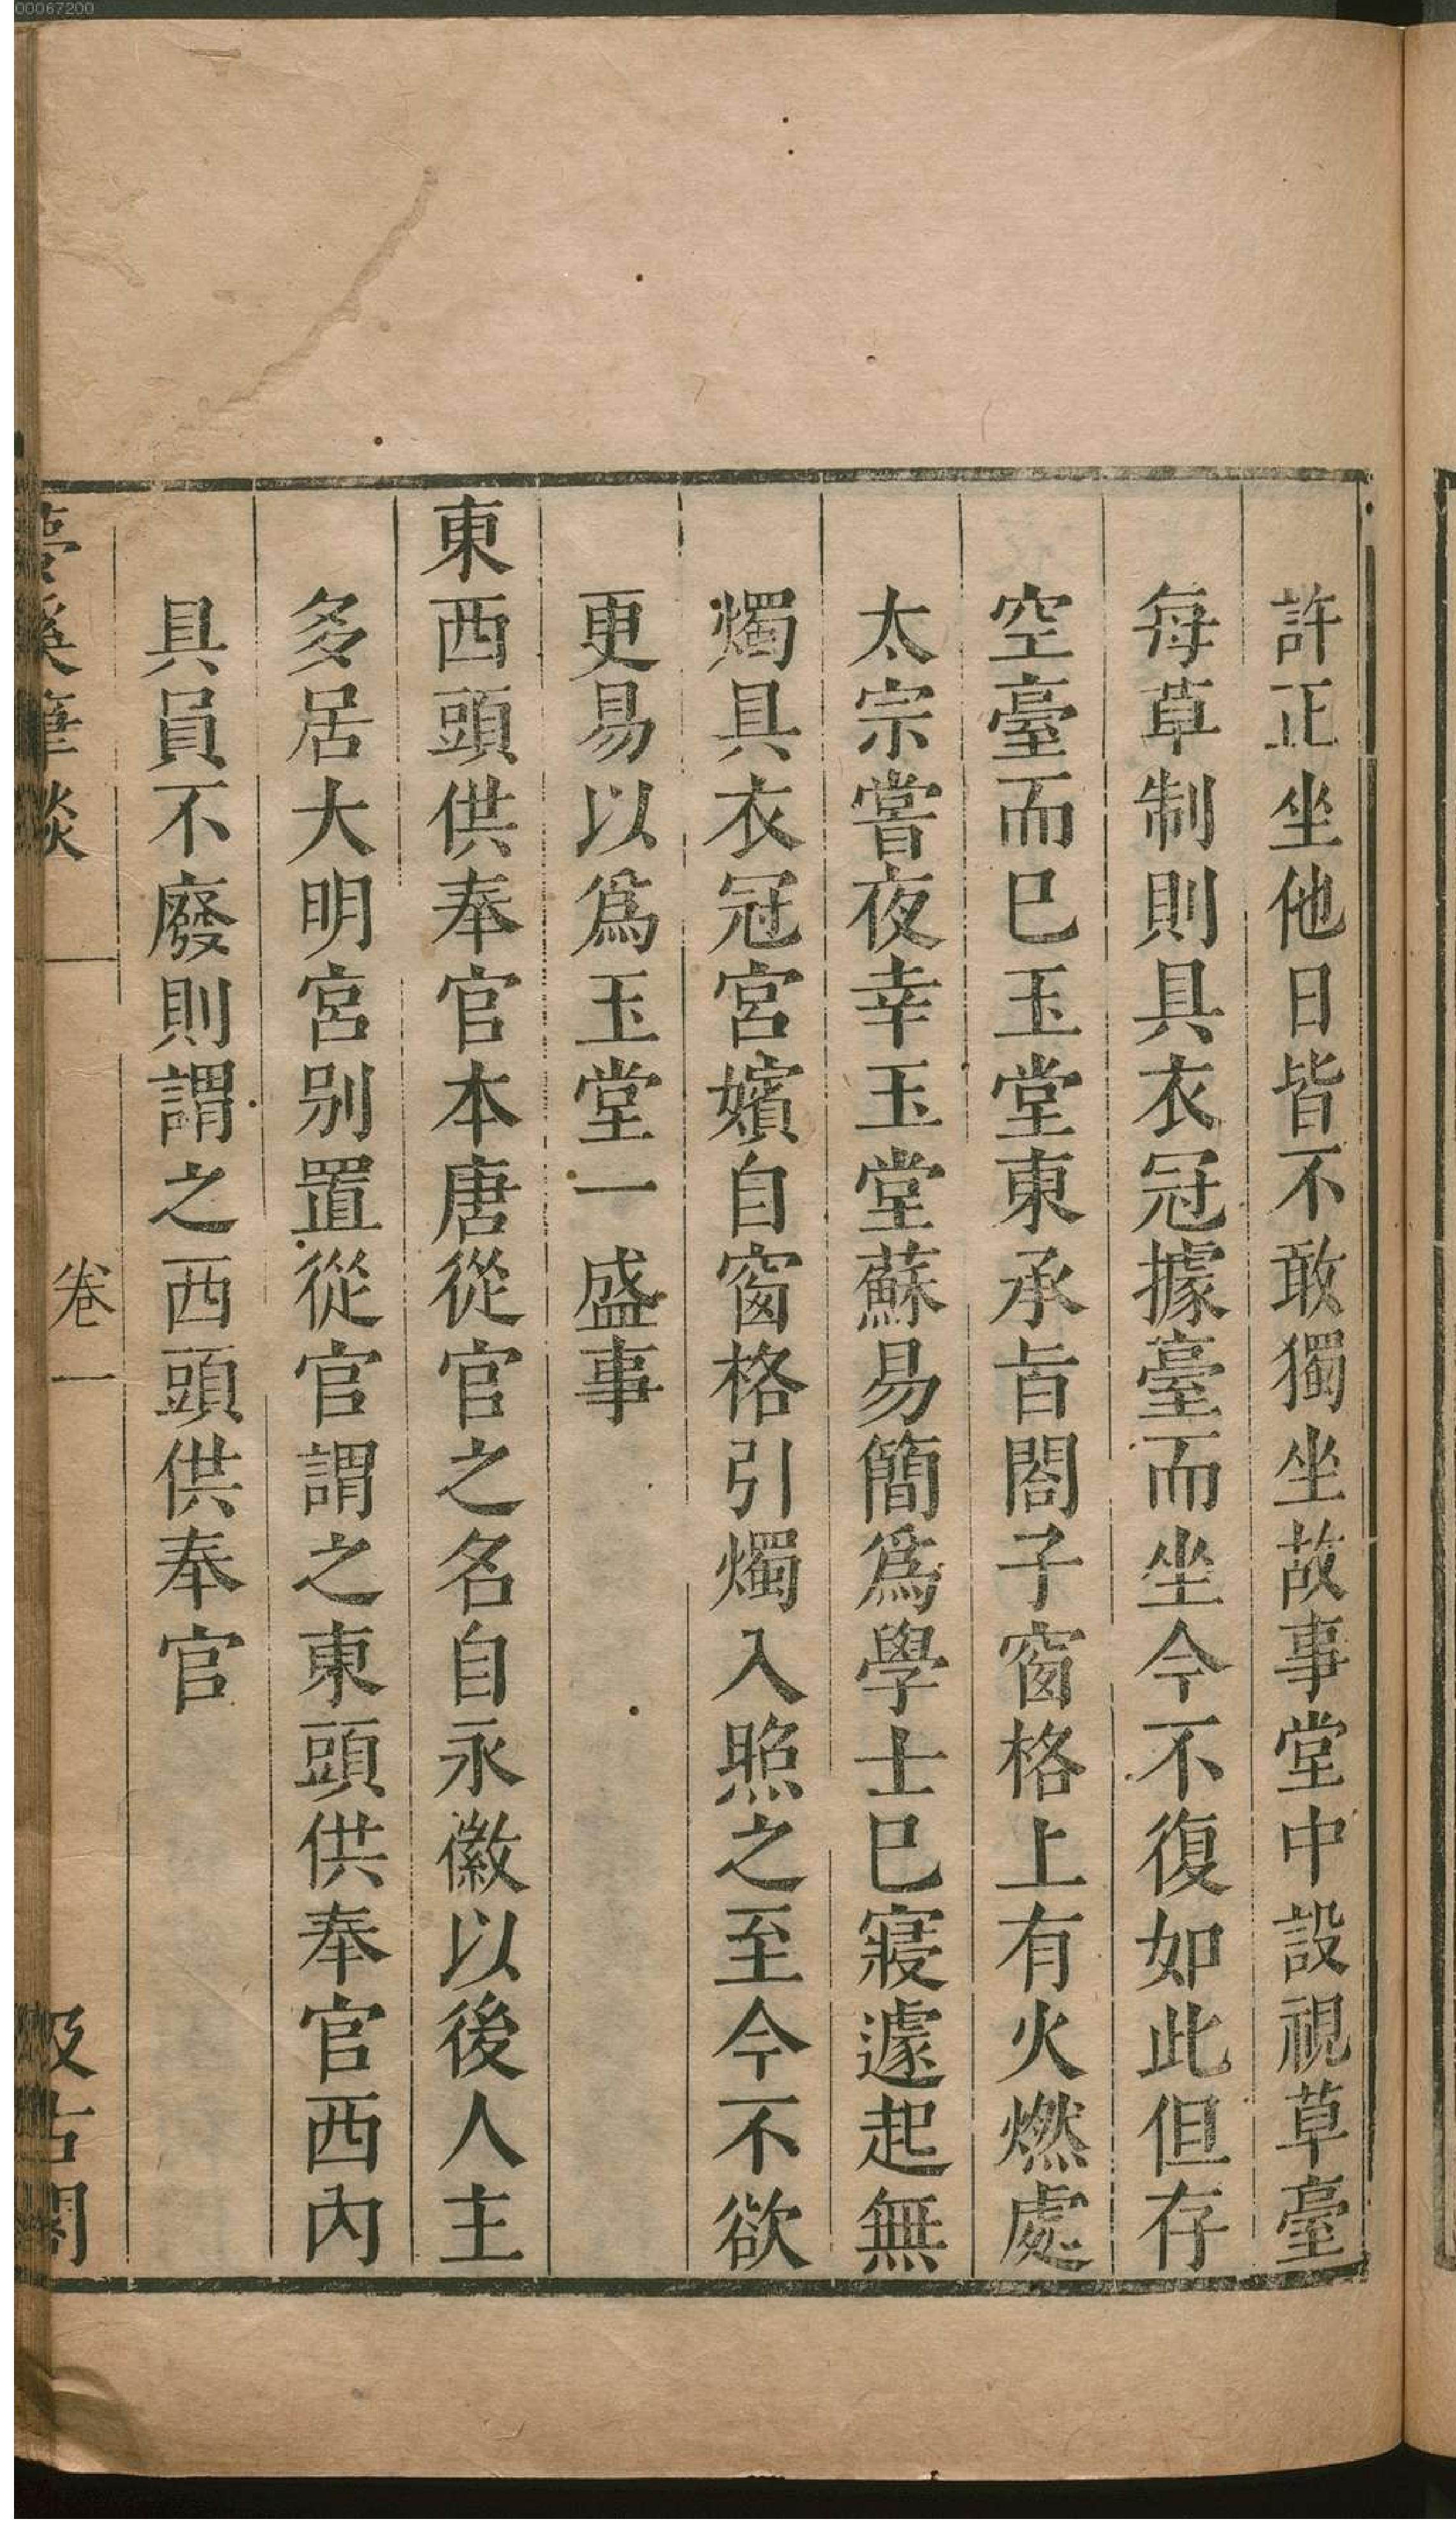 00067200
許正坐他日皆不敢獨坐故事堂中設視草臺
每草制則具衣冠據臺而坐今不復如此但存
空臺而巳玉堂東承旨閣子窗格上有火燃處
太宗嘗夜幸玉堂蘇易簡爲學士巳寢遽起無
燭具衣冠宮嬪自窗格引燭入照之至今不欲
更易以爲玉堂一盛事
東西頭供奉官本唐從官之名自永徽以後人主
多居大明宮別置從官謂之東頭供奉官西內
具員不廢則謂之西頭供奉官
夢溪筆談 卷一 汲古閣